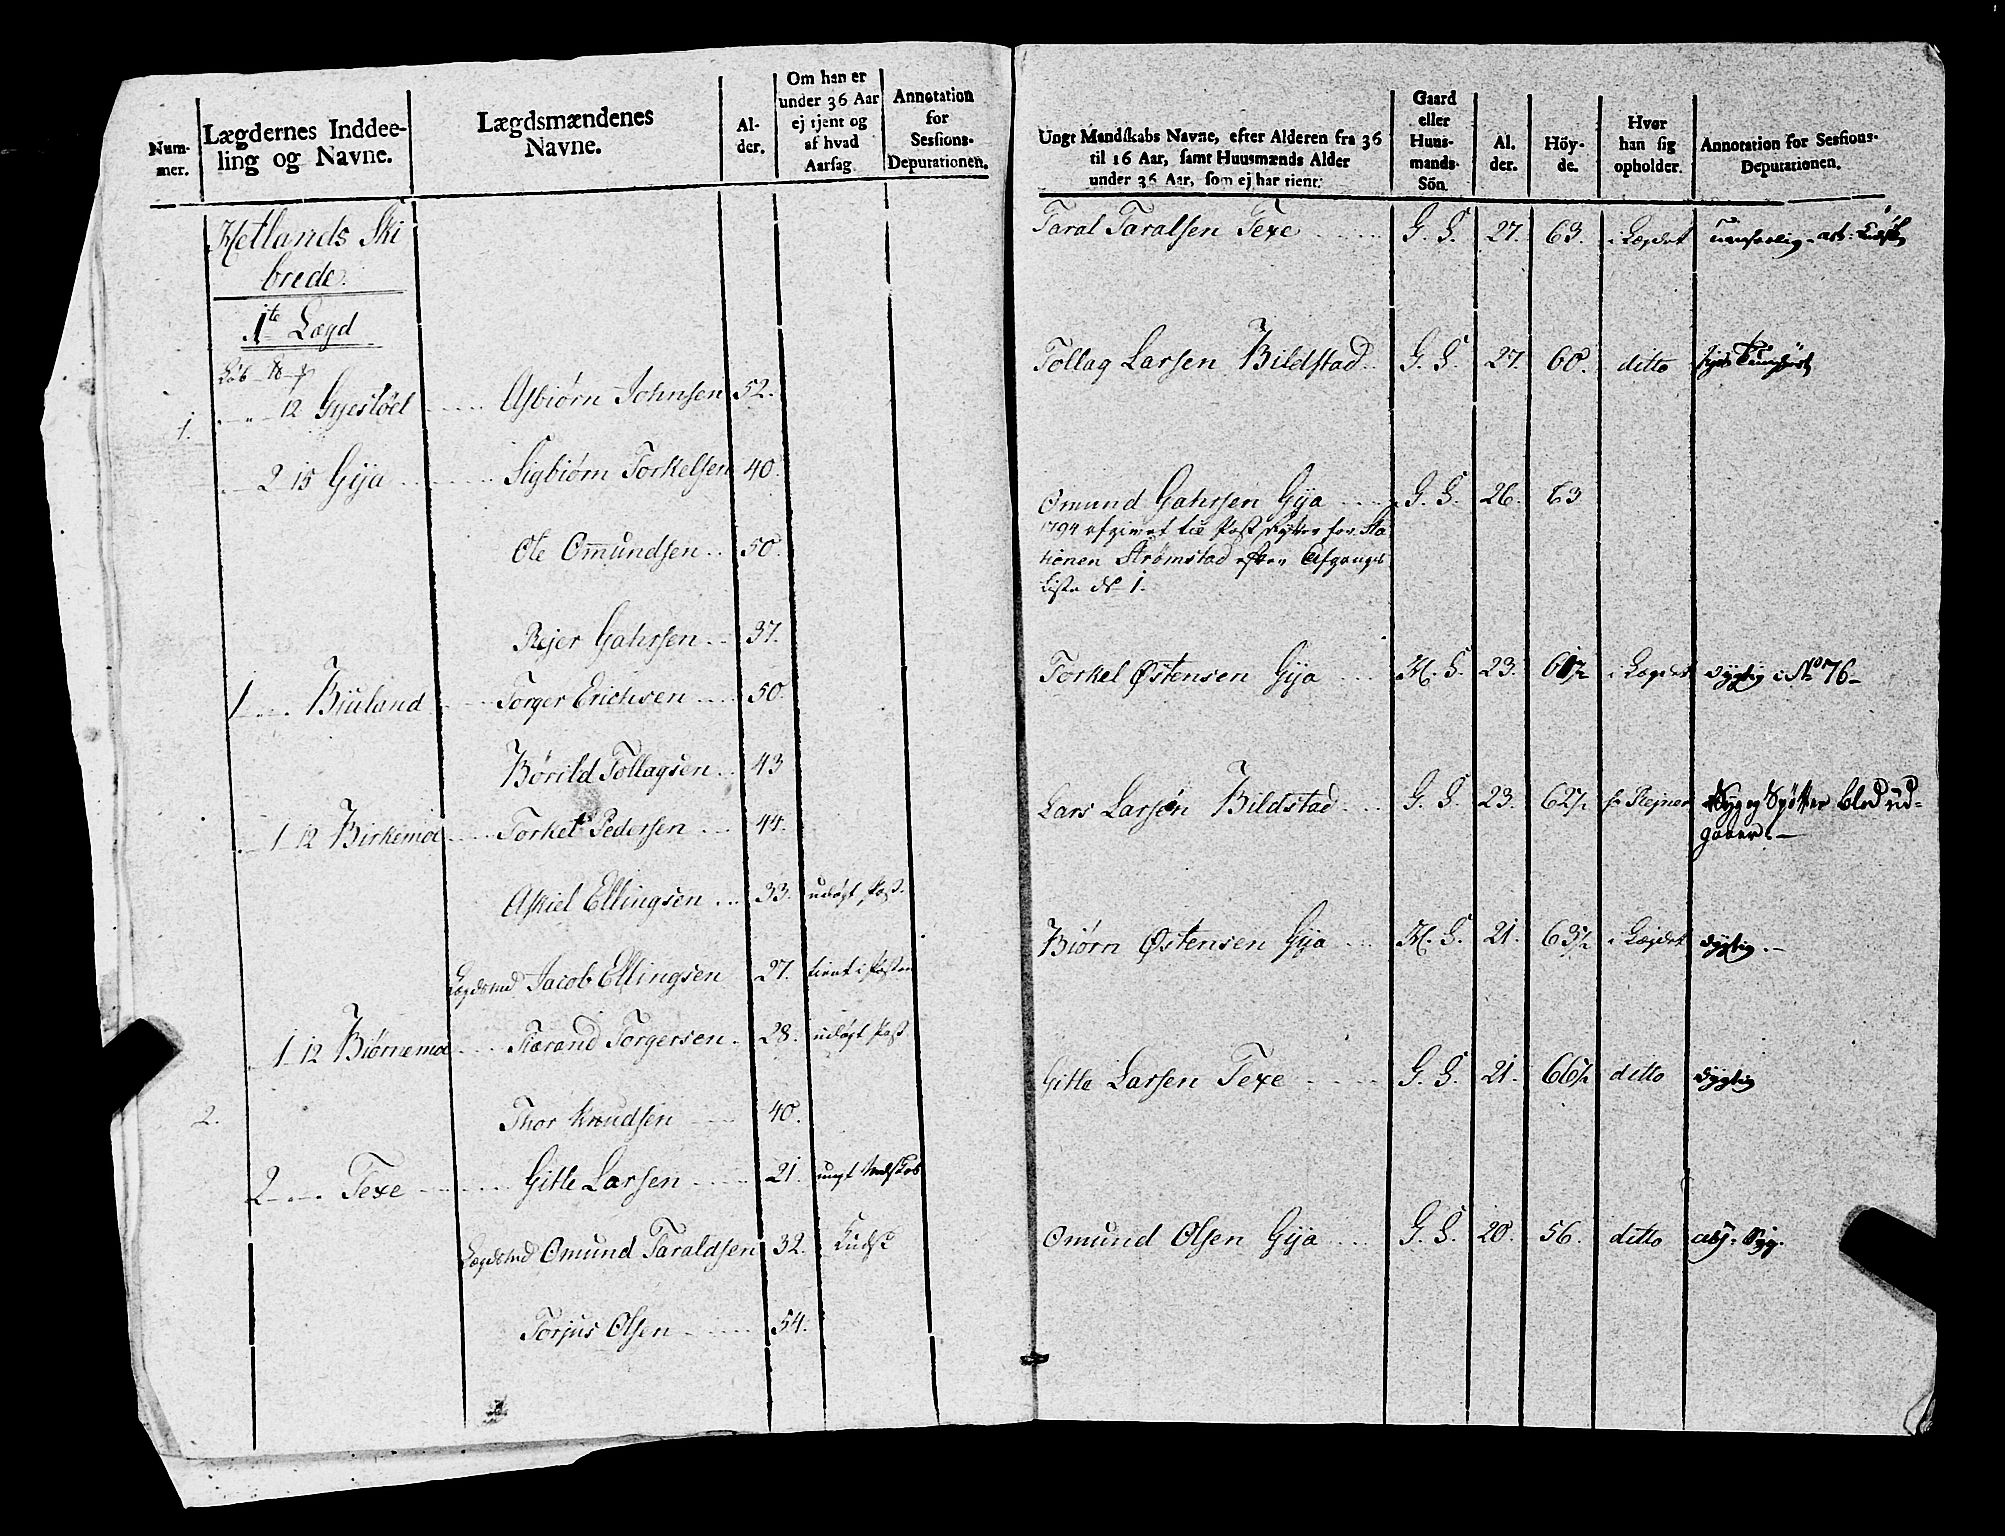 Num-
mer.
Lægdernes Inddee-
ling og Navne.
Lægdsmændenes
Navne.
Al-
der.
Om han er
under 36 Aar
ej tjent og
af hvad
Aarsag
Annotation
for
Sessions-
Deputationen.
Hetlands Ski
brede.
1te Lægd
Løb
1. 12 Gyestöel Asbiørn Johnsen 52.
2 15 Gyja Sigbiørn Torkelsen 40.
Ole Omundsen 50.
Rejer Gahrsen 37.
1 Biuland Torger Erichsen 50
Børild Tollagsen 43
1 12 Birkemoe Torkel Pedersen 44.
Askiel Ellingsen 33. udygt Post.
Lægdsmd Jacob Ellingsen 27. tient i Posten
1 12 Biørnemoe Tarand Torgersen 28. udygt Post
2. Thor Knudsen 40.
2 Texe Gitle Larsen 21. ungt Mdskab
Lægdsmd Omund Taraldsen 32. Kudsk
Torjus Olsen 54.
Ungt Mandskabs Navne, efter Alderen fra 36
til 16 Aar, samt Huusmænds Alder
under 36 Aar, som ej har tient.
Gaard
eller
Huus-
mands-
Sön.
Al.
der.
Höy-
de.
Hvor
han sig
opholder.
Annotation for Sessions-
Deputationen.
Taral Taralsen Texe G. S. 27. 63. i Lægdet
Tollag Larsen Bildstad G. S. 27. 60. ditto
Omund Gahrsen Gyja G. S. 26. 63
1794 afgivet til Post for Sta
tionen Strømstad efter Afgangs
Liste No 1.
Torkel Østensen Gyja H. S. 23. 61½ i Lægdet dygtig i No 76
Lars Larsen Bildstad G. S. 23. 62½ Syg og Spötter blod ud-
gaaer.
Biørn Østensen Gyja H. S. 21. 63½ i Lægdet dygtig.
Gitle Larsen Texe G. S. 21. 66½ ditto dygtig
Omund Olsen Gyja G. S. 20. 56. ditto